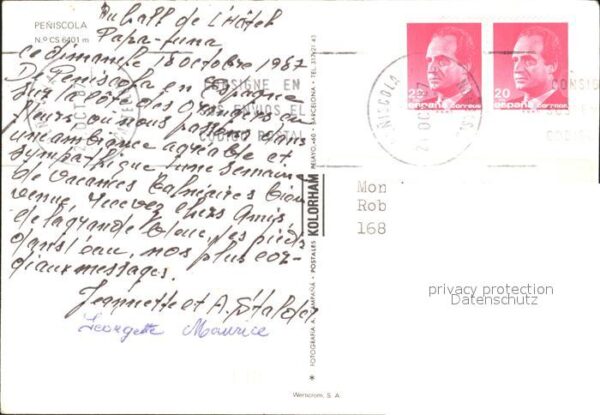 PEÑISCOLA
N.º CS 6401 m
Au hall de l'Hôtel
Papa-Luna
ce dimanche 18 octobre 1987
De Peniscola en Espagne
sur la côte des orangers en
fleurs où nous passons dans
une ambiance agréable et
sympathique une semaine
de vacances balnéaires bien
venue, recevez chers amis
de la grande bleue, les pieds
dans l'eau, nos plus cor-
diaux messages.
Jeannette et A. Stalder
Georgette Maurice
CONSIGNE EN
SUS ENVIOS EL
CODIGO POSTAL
PEÑISCOLA
OCT
20
españa correos
20
españa correos
PEÑISCOLA
OCT
CONSIG
FOTOGRAFIA A. CAMPAÑA - POSTALES KOLORHAM PELAYO, 60 - BARCELONA - TEL. 317 21 43
Mon
Rob
168
privacy protection
Datenschutz
Wersicrom, S. A.